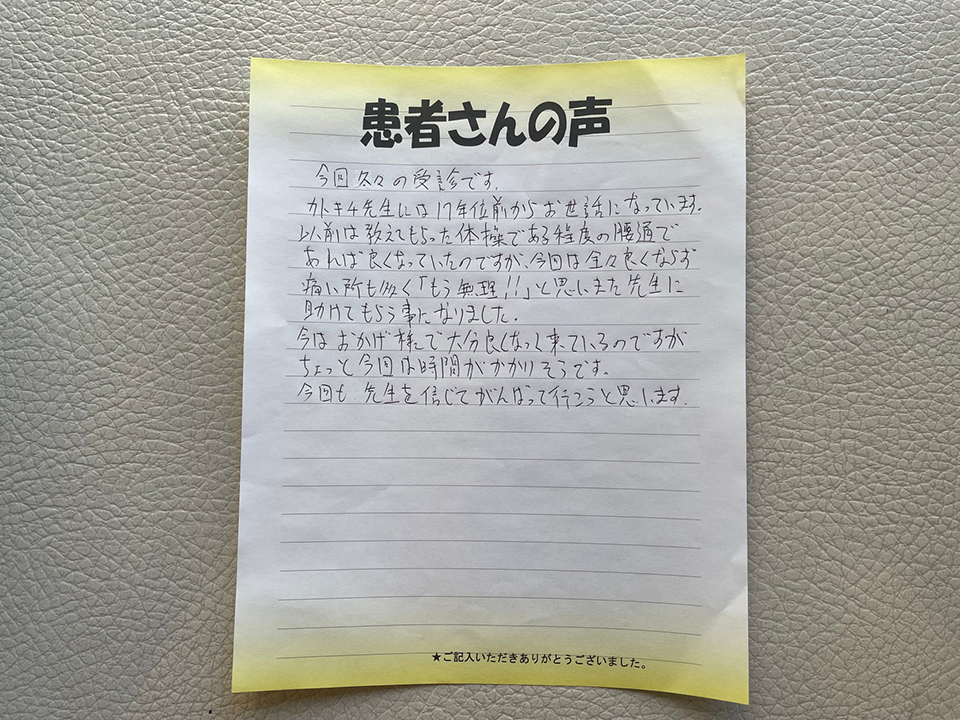 患者さんの声
今回久々の受診です。
カトキチ先生には17年位前からお世話になっています。
以前は教えてもらった体操である程度の腰通で
あれば良くなっていたのですが、今回は全々良くならず
痛い所も多く「もう無理!!」と思いまた先生に
助けてもらう事になりました。
今はおかげ様で大分良くなって来ているのですが
ちょっと今回は時間がかかりそうです。
今回も 先生を信じてがんばって行こうと思います。
★ご記入いただきありがとうございました。